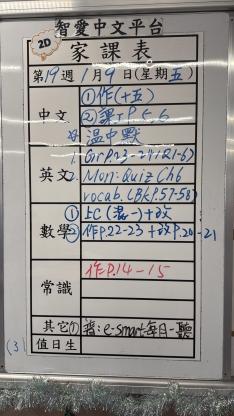 智愛中文平台
2D
家課表
第19週 1月9日(星期五)
中文
①作(十五)
②課工P.5,6
溫中默
英文
1. GrP.23-24(R1-6)
2. Mon: Quiz Ch6
vocab. (Bk P.57-58)
數學
① 上C(
)+改
② 作P.22-23 +改P.20-21
常識
作P.14-15
其它
(1) 普: e-smart每月一聽
值日生
(3)